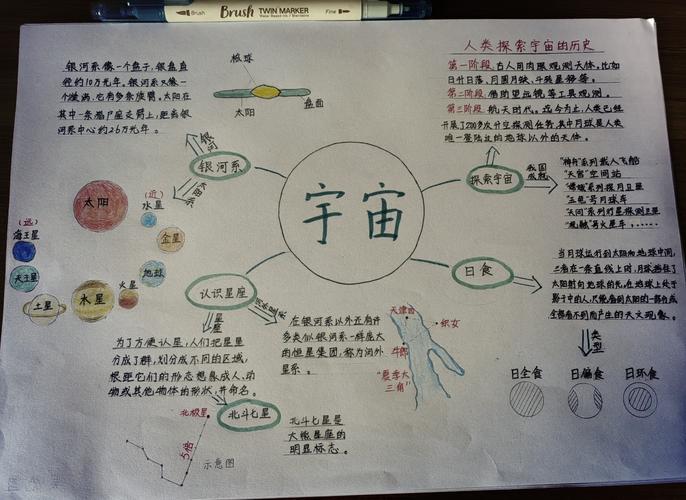 Brush
Brush TWIN MARKER
Fine
银河系像一个盘子,银盘直
径约10万光年。银河系又像一
个漩涡,它有多条旋臂。太阳在
其中一条猎户座支臂上,距离银
河系中心约2.6万光年。
核球
太阳
盘面
人类探索宇宙的历史
第一阶段,古人用肉眼观测天体。比如
日升日落,月圆月缺,斗转星移等。
第二阶段,借助望远镜等工具观测。
第三阶段,航天时代。迄今为止,人类已经
开展了200多次外空探测任务,其中月球是人类
唯一登陆过的地球以外的天体。
银河
银河系
太阳系
宇宙
探索宇宙
我国
成就
"神舟"系列载人飞船
"天宫"空间站
"嫦娥"系列探月卫星
"玉兔"号月球车
"天问"系列行星探测卫星
"祝融"号火星车,……
太阳
(近)
水星
金星
地球
火星
木星
土星
天王星
海王星
(远)
日食
当月球运行到太阳和地球中间,
三者在一条直线上时,月球挡住了
太阳射向地球的光,在地球上处于
影子中的人,只能看到太阳的一部分或
全部看不到而产生的天文现象。
类型
日全食
日偏食
日环食
认识星座
星座
河外星系
为了方便认星,人们把星星
分成了群,划分成不同的区域,
根据它们的形态想象成人、动
物或其他物体的形状,并命名。
在银河系以外还有许
多类似银河系一样庞大
的恒星集团,称为河外
星系。
天津四
织女
牛郎
"夏季大
三角"
北斗七星
北极星
5倍
示意图
北斗七星是
大熊星座的
明显标志。